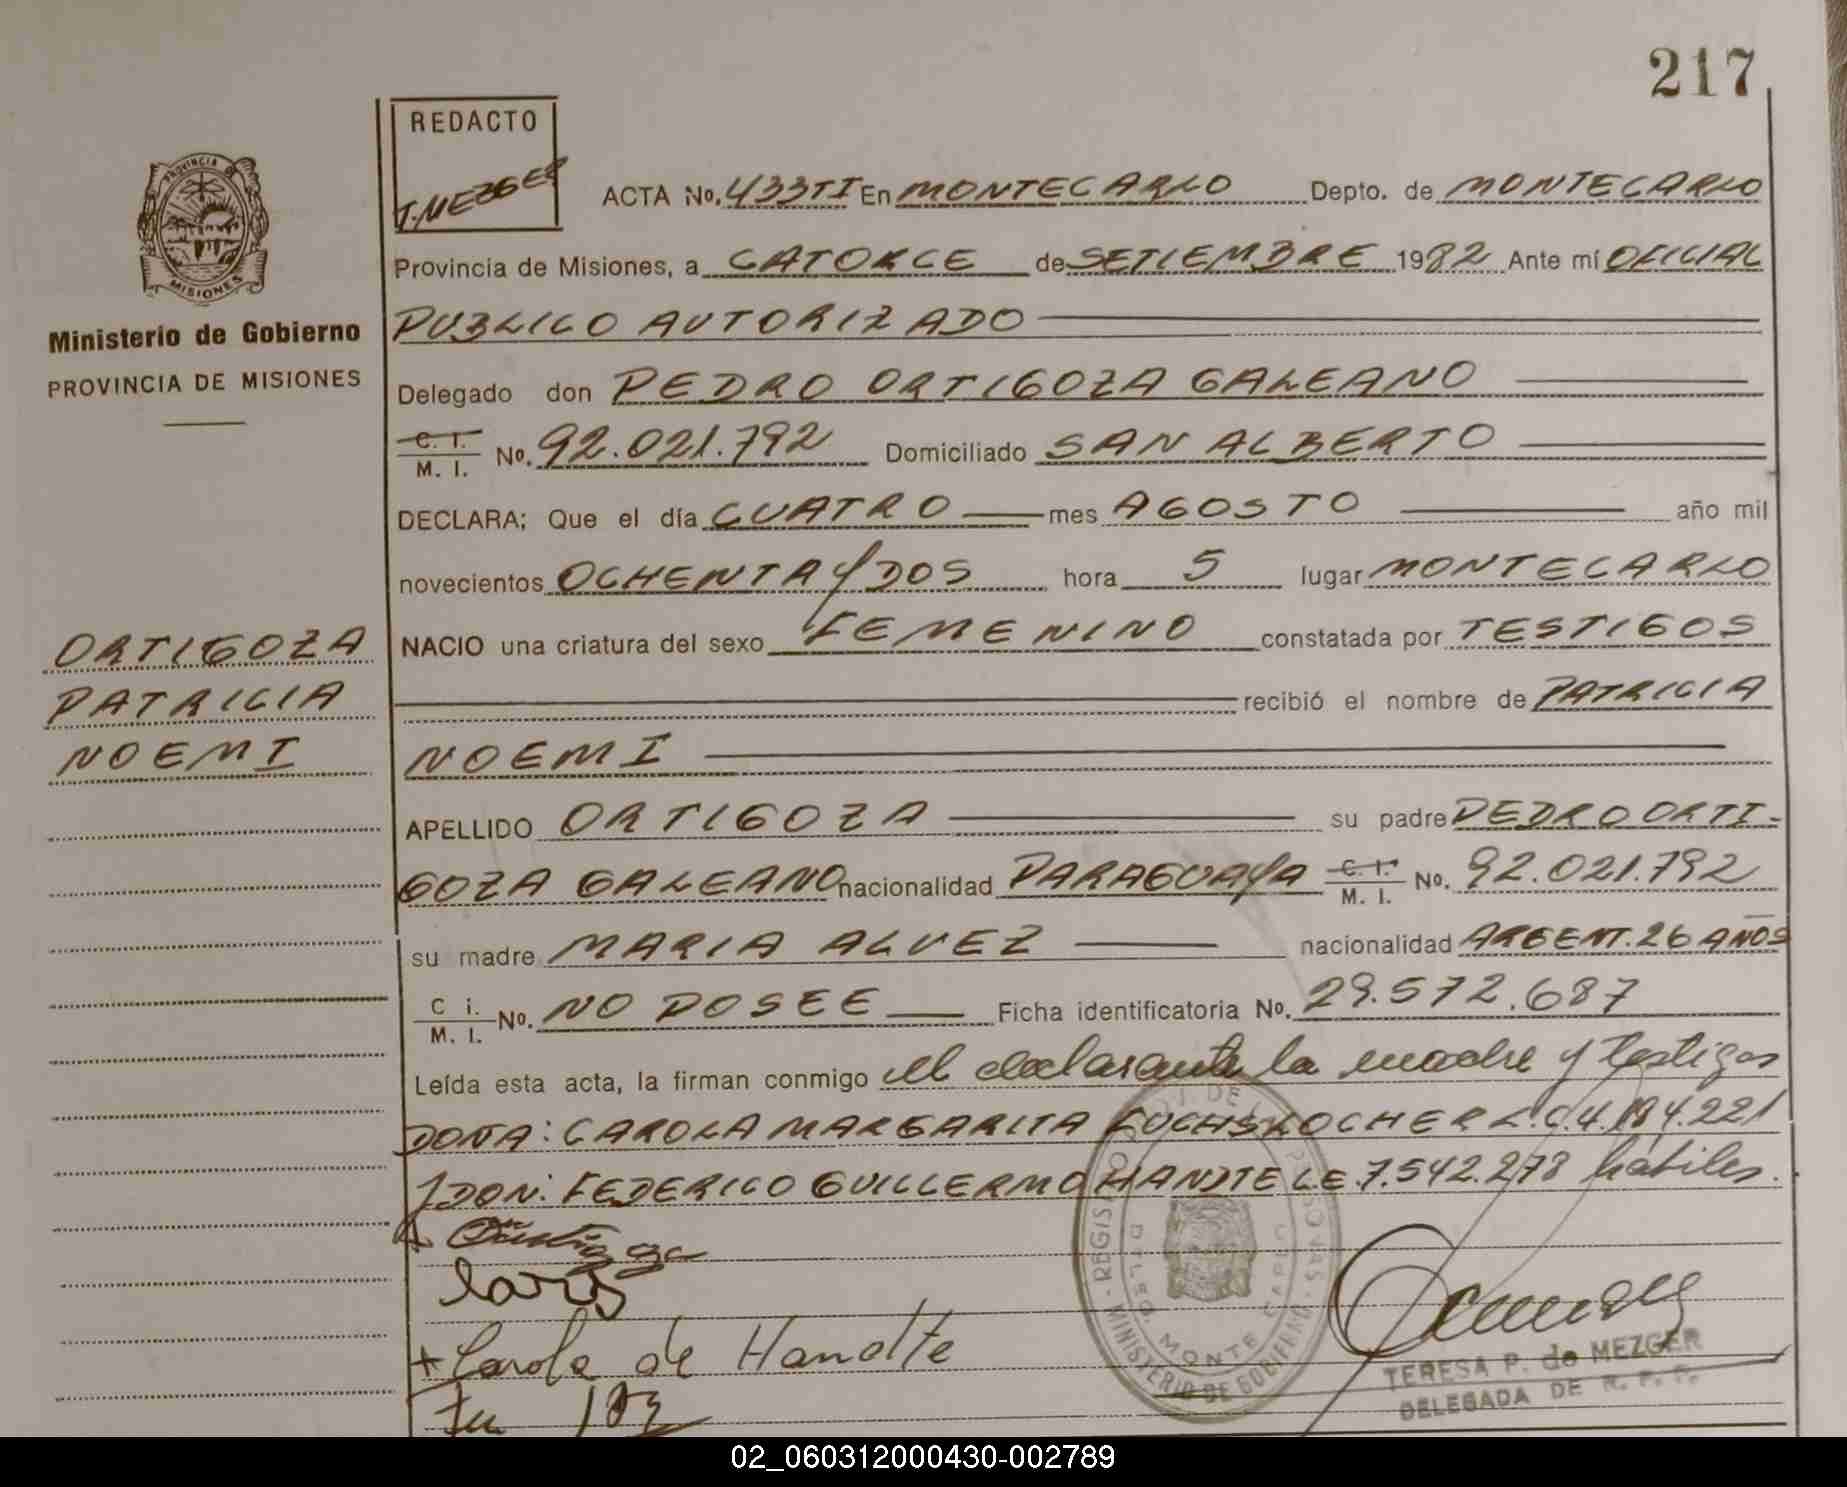 217
REDACTO
T. MEZGER
ACTA No. 433TI En MONTECARLO Depto. de MONTECARLO
Provincia de Misiones, a CATORCE de SETIEMBRE 1982 Ante mí OFICIAL
PUBLICO AUTORIZADO
Delegado don PEDRO ORTIGOZA GALEANO
C. I. / M. I. No. 92.021.792 Domiciliado SAN ALBERTO
DECLARA; Que el día CUATRO mes AGOSTO año mil
novecientos OCHENTA y DOS hora 5 lugar MONTECARLO
NACIO una criatura del sexo FEMENINO constatada por TESTIGOS
recibió el nombre de PATRICIA
NOEMI
APELLIDO ORTIGOZA su padre PEDRO ORTI-
GOZA GALEANO nacionalidad PARAGUAYA C. I. / M. I. No. 92.021.792
su madre MARIA ALVEZ nacionalidad ARGENT. 26 AÑOS
C i. / M. I. No. NO POSEE Ficha identificatoria No. 29.572.687
Leída esta acta, la firman conmigo el declarante la madre y testigos
DOÑA: CAROLA MARGARITA FUCHSLOCHER L.C. 4.194.221
y DON: FEDERICO GUILLERMO HANDTE L.E. 7.542.278 hábiles.
+ Carola de Handte
PROVINCIA DE
MISIONES
Ministerio de Gobierno
PROVINCIA DE MISIONES
ORTIGOZA
PATRICIA
NOEMI
MINISTERIO DE GOBIERNO
TERESA P. de MEZGER
DELEGADA DE R. P. P.
02_060312000430-002789